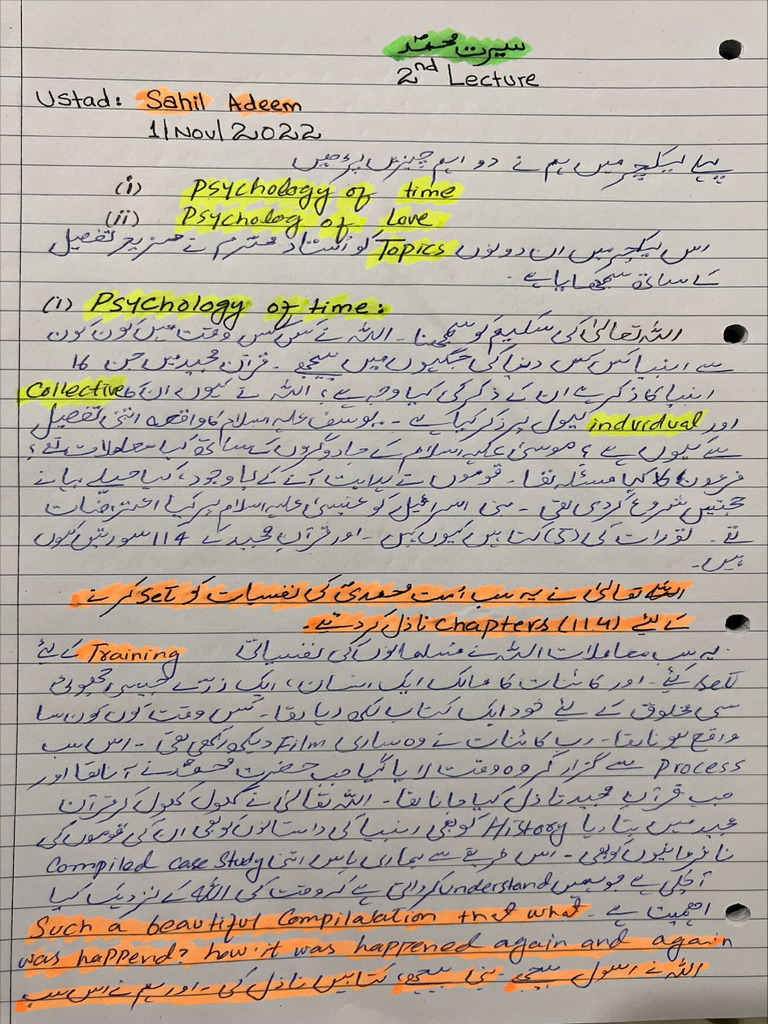 سیرت محمدؐ
2nd Lecture
Ustad: Sahil Adeem
1/Nov/2022
پہلے لیکچر میں ہم نے دو اہم چیزیں پڑھیں
(i) Psychology of time
(ii) Psycholog of Love
اس لیکچر میں ان دونوں Topics کو استاد محترم نے مزید تفصیل
کے ساتھ سمجھایا ہے۔
(i) Psychology of time:
اللہ تعالیٰ کی سکیم کو سمجھنا۔ اللہ نے کس کس وقت میں کون کون
سے انبیا کس کس دنیا کی جگہوں میں بھیجے۔ قرآن مجید میں جن 16
انبیا کا ذکر ہے ان کے ذکر کی کیا وجہ ہے؟ اللہ نے کیوں ان کا Collective
اور indvidual لیول پر ذکر کیا ہے۔ یوسف علیہ اسلام کا واقعہ اتنی تفصیل
سے کیوں ہے؟ موسیٰ علیہ اسلام کے جادوگروں کے ساتھ کیا معاملات تھے؟
فرعون کا کیا مسئلہ تھا۔ قوموں نے ہدایت آنے کے باوجود، کیا حیلے بہانے
حجتیں شروع کر دی تھی۔ بنی اسرائیل کو عیسیٰ علیہ اسلام پر کیا اعتراضات
تھے۔ تورات کی کتابیں کیوں ہیں۔ اور قرآن مجید کے 114 سورتیں کیوں
ہیں۔
اللہ تعالیٰ نے یہ سب امت محمدیؐ کی نفسیات کو set کرنے
کے لیئے (114) Chapters نازل کر دئے۔
یہ سب معاملات اللہ نے مسلمانوں کی نفسیاتی Training کے لیئے
set کیئے۔ اور کائنات کا مالک ایک انسان، ایک ذرے جیسی چھوٹی
سی مخلوق کے لیئے خود ایک کتاب لکھ دیا تھا۔ کس وقت کون کون سا
واقع ہونا تھا۔ رب کائنات نے وہ ساری Film دیکھ رکھی تھی۔ اس سب
Process سے گزار کر وہ وقت لایا گیا جب حضرت محمدؐ نے آنا تھا اور
جب قرآن مجید نازل کیا جانا تھا۔ اللہ تعالیٰ نے کھول کھول کر قرآن
مجید میں بتا دیا History کو بھی انبیا کی داستانوں کو بھی ان کی قوموں کی
نافرمانیوں کو بھی۔ اس طریقے سے ہماری پاس اتنی Compiled case Study
آچکی ہے جو ہمیں understand کرواتی ہے کہ وقت کی اللہ کے نزدیک کیا
اہمیت ہے۔ Such a beautiful Compilalation that what
was happend? how it was happened again and again
اللہ نے رسول بھیجے نبی بھیجے، کتابیں نازل کی۔ اور ہم نے اس سب